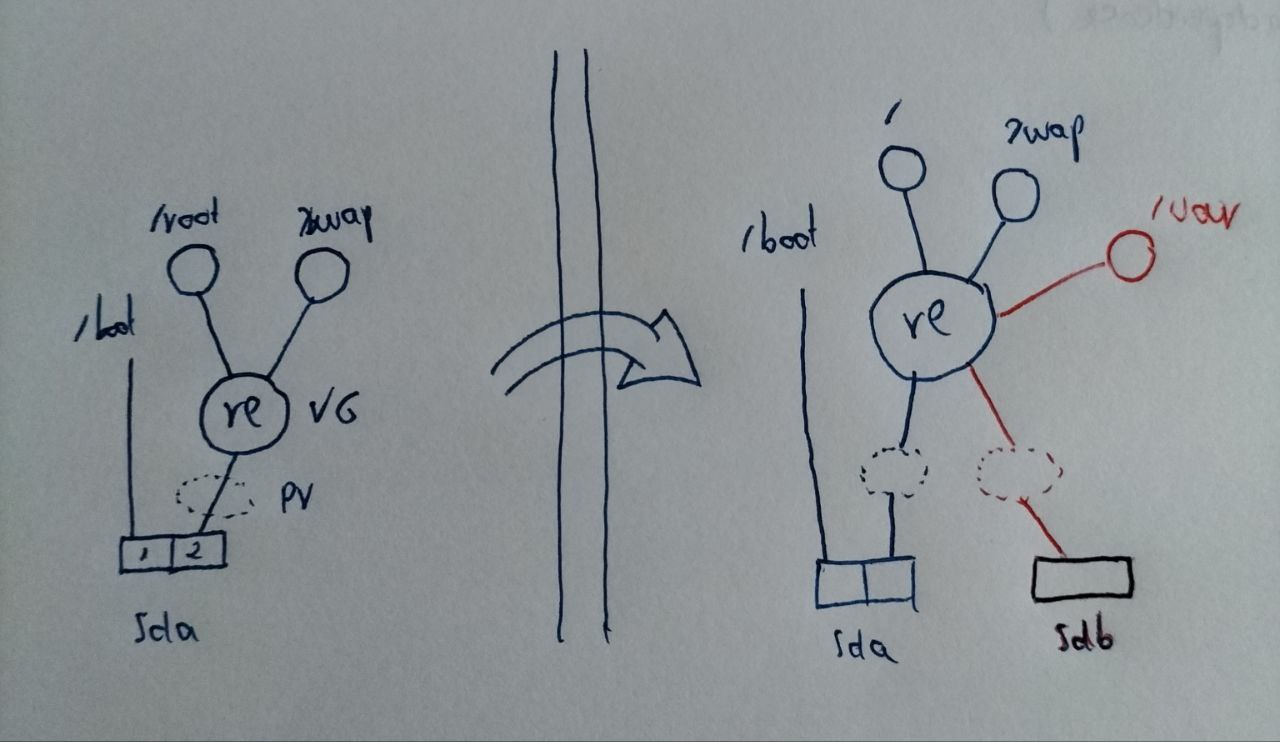 /root
swap
/boot
re
VG
PV
1
2
sda
/
swap
/var
/boot
re
sda
sdb